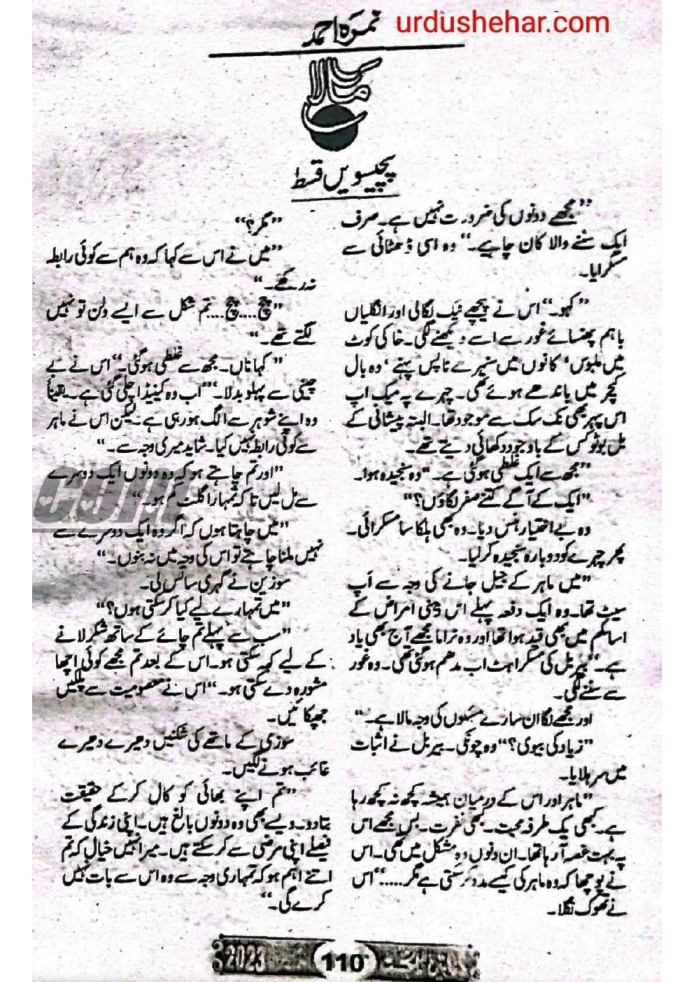 urdushehar.com
نمرہ احمد
مالا
پچیسویں قسط
’’مجھے دونوں کی ضرورت نہیں ہے۔ صرف
ایک سننے والا کان چاہیے۔‘‘ وہ اسی ڈھٹائی سے
مسکرایا۔
’’کہو۔‘‘ اس نے پیچھے ٹیک لگالی اور انگلیاں
باہم پھنسائے غور سے اسے دیکھنے لگی۔ خاکی کوٹ
میں ملبوس‘ کانوں میں سنہرے ٹاپس پہنے‘ وہ بال
کیچر میں باندھے ہوئے تھی۔ چہرے پہ میک اپ
اس پہر بھی تک سک سے موجود تھا۔ البتہ پیشانی کے
بل بوٹوکس کے باوجود دکھائی دیتے تھے۔
’’مجھ سے ایک غلطی ہوگئی ہے۔‘‘ وہ سنجیدہ ہوا۔
’’ایک کے آگے کتنے صفر لگاؤں؟‘‘
وہ بے اختیار ہنس دیا۔ وہ بھی ہلکا سا مسکرائی۔
پھر چہرے کو دوبارہ سنجیدہ کرلیا۔
’’میں ماہر کے جیل جانے کی وجہ سے اَپ
سیٹ تھا۔ وہ ایک دفعہ پہلے اس ذہنی امراض کے
اسائلم میں بھی قید ہوا تھا اور وہ ٹراما مجھے آج بھی یاد
ہے۔‘‘ بیربل کی مسکراہٹ اب مدھم ہوگئی تھی۔ وہ غور
سے سننے لگی۔
اور مجھے لگا ان سارے مسئلوں کی وجہ مالا ہے۔‘‘
’’زیاد کی بیوی؟‘‘ وہ چونکی۔ بیربل نے اثبات
میں سر ہلایا۔
’’ماہر اور اس کے درمیان ہمیشہ کچھ نہ کچھ رہا
ہے۔ کبھی یک طرفہ محبت۔ کبھی نفرت۔ بس مجھے اس
پہ بہت غصہ آ رہا تھا۔ ان دنوں وہ مشکل میں تھی۔ اس
نے پوچھا کہ وہ ماہر کی کیسے مدد کر سکتی ہے مگر.....‘‘ اس
نے تھوک نگلا۔
’’مگر؟‘‘
’’میں نے اس سے کہا کہ وہ ہم سے کوئی رابطہ
نہ رکھے۔‘‘
’’چچ.... چچ.... تم شکل سے ایسے ولن تو نہیں
لگتے تھے۔‘‘
’’کہا ناں۔ مجھ سے غلطی ہوگئی۔‘‘ اس نے بے
چینی سے پہلو بدلا۔ ’’اب وہ کینیڈا چلی گئی ہے۔ یقیناً
وہ اپنے شوہر سے الگ ہو رہی ہے۔ لیکن اس نے ماہر
سے کوئی رابطہ نہیں کیا۔ شاید میری وجہ سے۔‘‘
’’اور تم چاہتے ہو کہ وہ دونوں ایک دوسرے
سے مل لیں تاکہ تمہارا گلٹ کم ہو۔‘‘
’’میں چاہتا ہوں کہ اگر وہ ایک دوسرے سے
نہیں ملنا چاہتے تو اس کی وجہ میں نہ بنوں۔‘‘
سوزین نے گہری سانس لی۔
’’میں تمہارے لیے کیا کر سکتی ہوں؟‘‘
’’سب سے پہلے تم چائے کے ساتھ شکر لانے
کے لیے کہہ سکتی ہو۔ اس کے بعد تم مجھے کوئی اچھا
مشورہ دے سکتی ہو۔‘‘ اس نے معصومیت سے پلکیں
جھپکائیں۔
سوزی کے ماتھے کی شکنیں دھیرے دھیرے
غائب ہونے لگیں۔
’’تم اپنے بھائی کو کال کرکے حقیقت
بتادو۔ ویسے بھی وہ دونوں بالغ ہیں۔ اپنی زندگی کے
فیصلے اپنی مرضی سے کر سکتے ہیں۔ میرا نہیں خیال کہ تم
اتنے اہم ہو کہ تمہاری وجہ سے وہ اس سے بات نہیں
کرے گی۔‘‘
110 2023